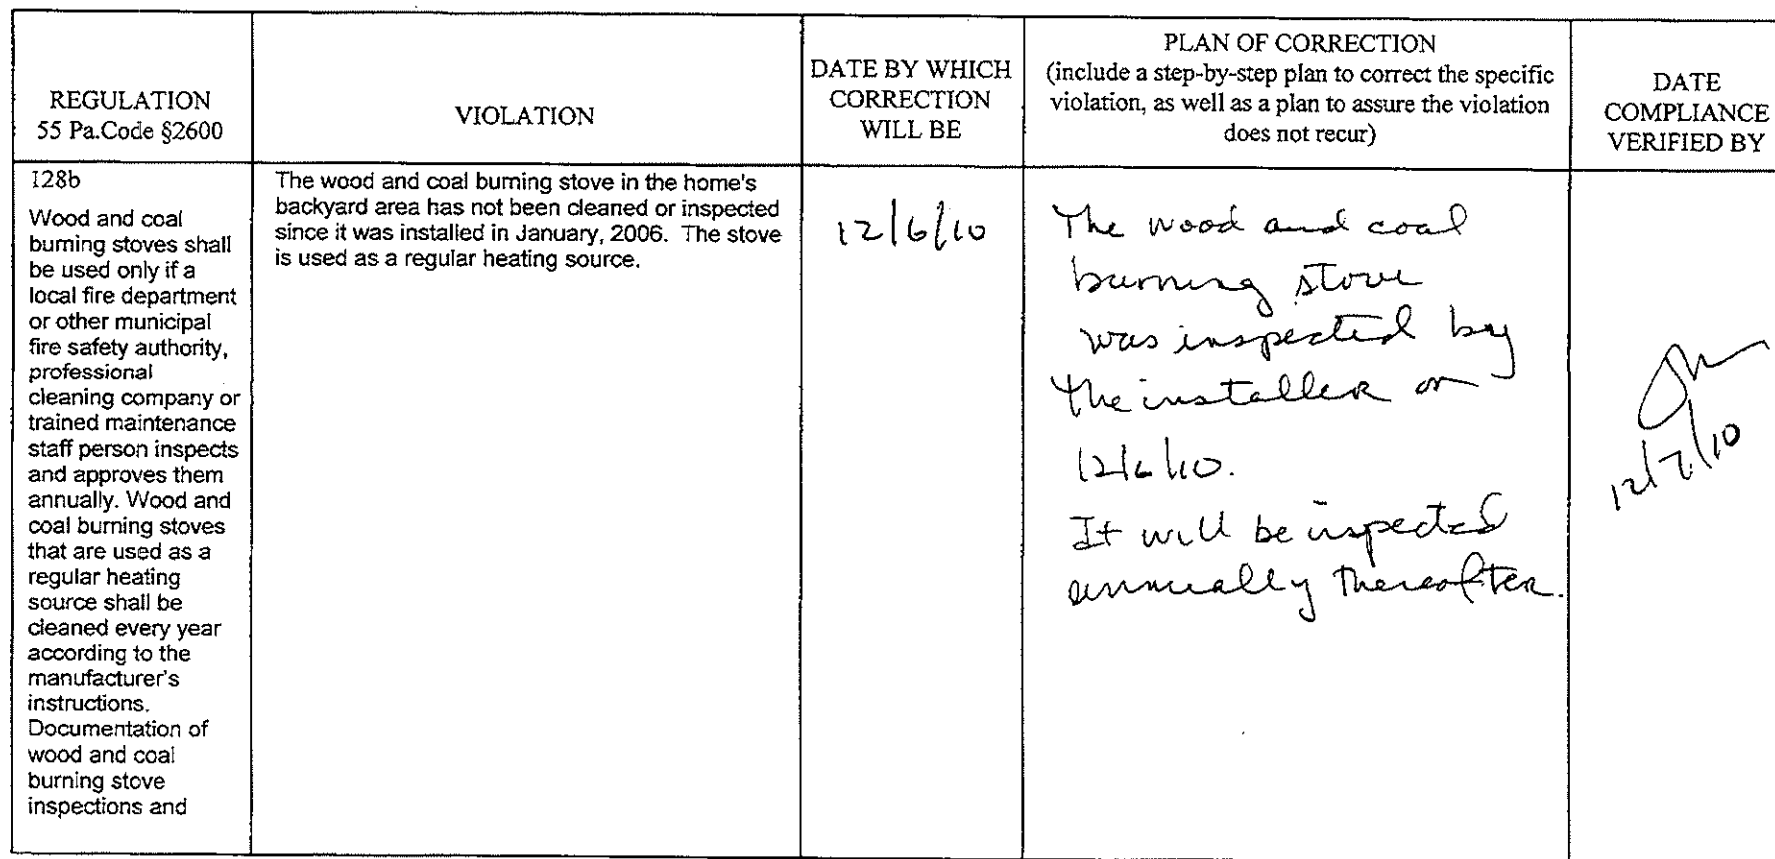 REGULATION
55 Pa.Code §2600
VIOLATION
DATE BY WHICH
CORRECTION
WILL BE
PLAN OF CORRECTION
(include a step-by-step plan to correct the specific
violation, as well as a plan to assure the violation
does not recur)
DATE
COMPLIANCE
VERIFIED BY
128b
Wood and coal
burning stoves shall
be used only if a
local fire department
or other municipal
fire safety authority,
professional
cleaning company or
trained maintenance
staff person inspects
and approves them
annually. Wood and
coal burning stoves
that are used as a
regular heating
source shall be
cleaned every year
according to the
manufacturer's
instructions.
Documentation of
wood and coal
burning stove
inspections and
The wood and coal burning stove in the home's
backyard area has not been cleaned or inspected
since it was installed in January, 2006. The stove
is used as a regular heating source.
12/6/10
The wood and coal
burning stove
was inspected by
the installer on
12/6/10.
It will be inspected
annually thereafter.
12/7/10